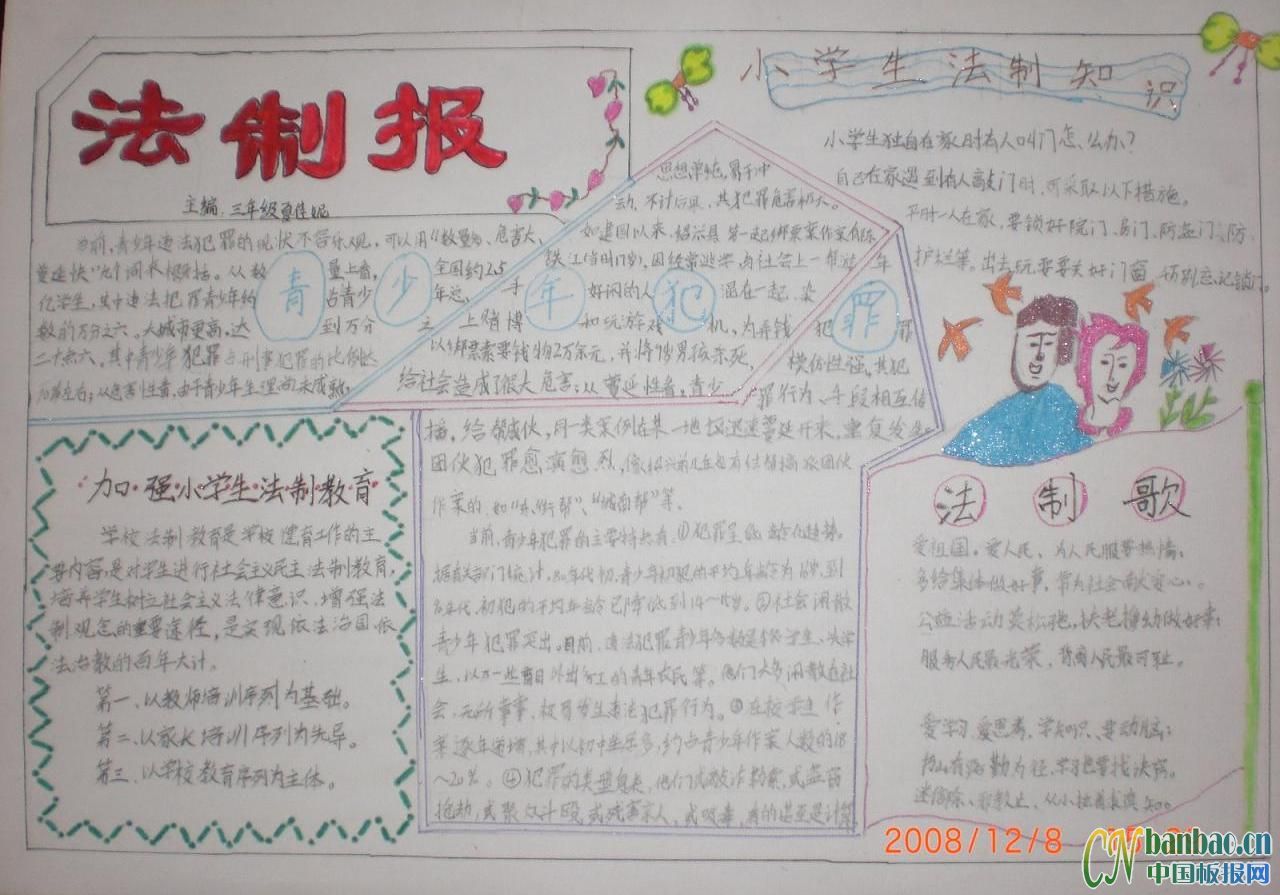 法制报
主编:三年级夏佳妮
当前,青少年违法犯罪的现状不容乐观,可以用"数量多、危害大,
蔓延快"九个词来概括。从数量上看,全国约2.5
亿学生,其中违法犯罪青少年约占青少年总
数的万分之六。大城市更高,达到万分之
二十点六,其中青少年犯罪占刑事犯罪的比例达
左右;从危害性看,由于青少年生理尚未成熟,
青少年犯罪
思想单纯,易于冲
动,不计后果,其犯罪危害极大。
如建国以来,绍兴县第一起绑票案作案
铁江(当时17岁),因经常逃学,与社会上一帮
手好闲的人混在一起,染
上赌博和玩游戏机,为弄钱犯罪
以绑票索要钱物2万余元,并将男孩杀死,
给社会造成了很大危害;从蔓延性看,青少年犯罪
模仿性强,其犯
罪行为、手段相互传
播,结帮成伙,同一类案例在某一地区迅速蔓延开来,重复发生
团伙犯罪愈演愈烈,像绍兴前几年也有
作案的,如"东街帮"、"城南帮"等。
当前,青少年犯罪的主要特点有:①犯罪呈低龄化趋势。
据有关部门统计,80年代初,青少年初犯的平均年龄为岁,到
90年代,初犯的平均年龄已降低到14~岁。②社会闲散
青少年犯罪突出。目前,违法犯罪青少年多数是学生、失学
生,以及一些盲目外出务工的青年农民等。他们大多闲散在社
会,无所事事,极易发生违法犯罪行为。③在校学生作
案逐年递增,其中以初中生居多,约占青少年作案人数的18
~20%。④犯罪的类型更大,他们或敲诈勒索,或盗窃
抢劫,或聚众斗殴,或残害亲人,或吸毒,有的甚至是计算
加强小学生法制教育
学校法制教育是学校德育工作的主
要内容,是对学生进行社会主义民主法制教育,
培养学生树立社会主义法律意识、增强法
制观念的重要途径,是实现依法治国依
法治教的百年大计。
第一、以教师培训序列为基础。
第二、以家长培训序列为先导。
第三、以学校教育序列为主体。
小学生法制知识
小学生独自在家时有人叫门怎么办?
自己在家遇到有人敲门时,可采取以下措施。
平时一人在家,要锁好院门、房门、防盗门、防
护栏等。出去玩耍要关好门窗,千万别忘记锁门。
法制歌
爱祖国,爱人民,为人民服务热情;
多给集体做好事,常为社会献爱心。
公益活动莫松弛,扶老携幼做好事;
服务人民最光荣,背离人民最可耻。
爱学习,爱思考,学知识,要动脑;
书山有路勤为径,学习也要找诀窍。
迷信除,邪教止,从小
2008/12/8
CN banbao.cn
中国板报网